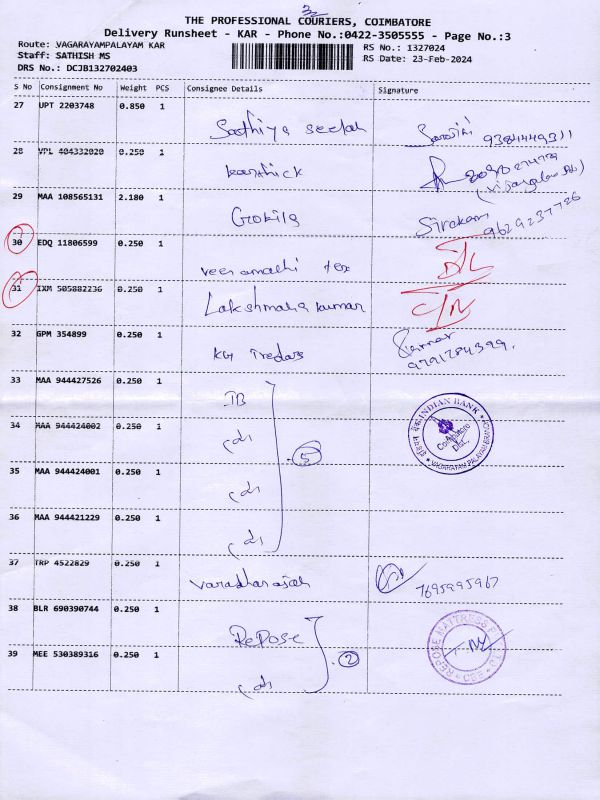 32
THE PROFESSIONAL COURIERS, COIMBATORE
Delivery Runsheet - KAR - Phone No.:0422-3505555 - Page No.:3
Route: VAGARAYAMPALAYAM KAR
Staff: SATHISH MS
DRS No.: DCJB132702403
RS No.: 1327024
RS Date: 23-Feb-2024
S No Consignment No Weight PCS Consignee Details Signature
27 UPT 2203748 0.850 1 Sathiya seelah 9384449311
28 VPL 404332020 0.250 1 karthick
29 MAA 108565131 2.180 1 Gokila Sivakam 9629237726
30 EDQ 11806599 0.250 1 veeramathi tex D/L
31 IXM 505882236 0.250 1 Lakshmana kumar C/N
32 GPM 354899 0.250 1 KG Treders 9791784399.
33 MAA 944427526 0.250 1 IB
34 MAA 944424002 0.250 1
INDIAN BANK
Coimbatore
Dist.
VAGARAYAM PALAYAM BRANCH
5
35 MAA 944424001 0.250 1
36 MAA 944421229 0.250 1
37 TRP 4522829 0.250 1 varadharajah 7695995967
38 BLR 690390744 0.250 1 RePose
REPOSE MATTRESS
39 MEE 530389316 0.250 1
2